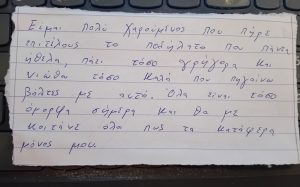 Είμαι πολύ χαρούμενος που πήρα
επιτέλους το ποδήλατο που πάντα
ήθελα, πάει τόσο γρήγορα και
νιώθω τόσο καλά που πηγαίνω
βόλτες με αυτό. Όλα είναι τόσο
όμορφα σήμερα και θα με
κοιτάνε όλοι πως τα κατάφερα
μόνος μου.